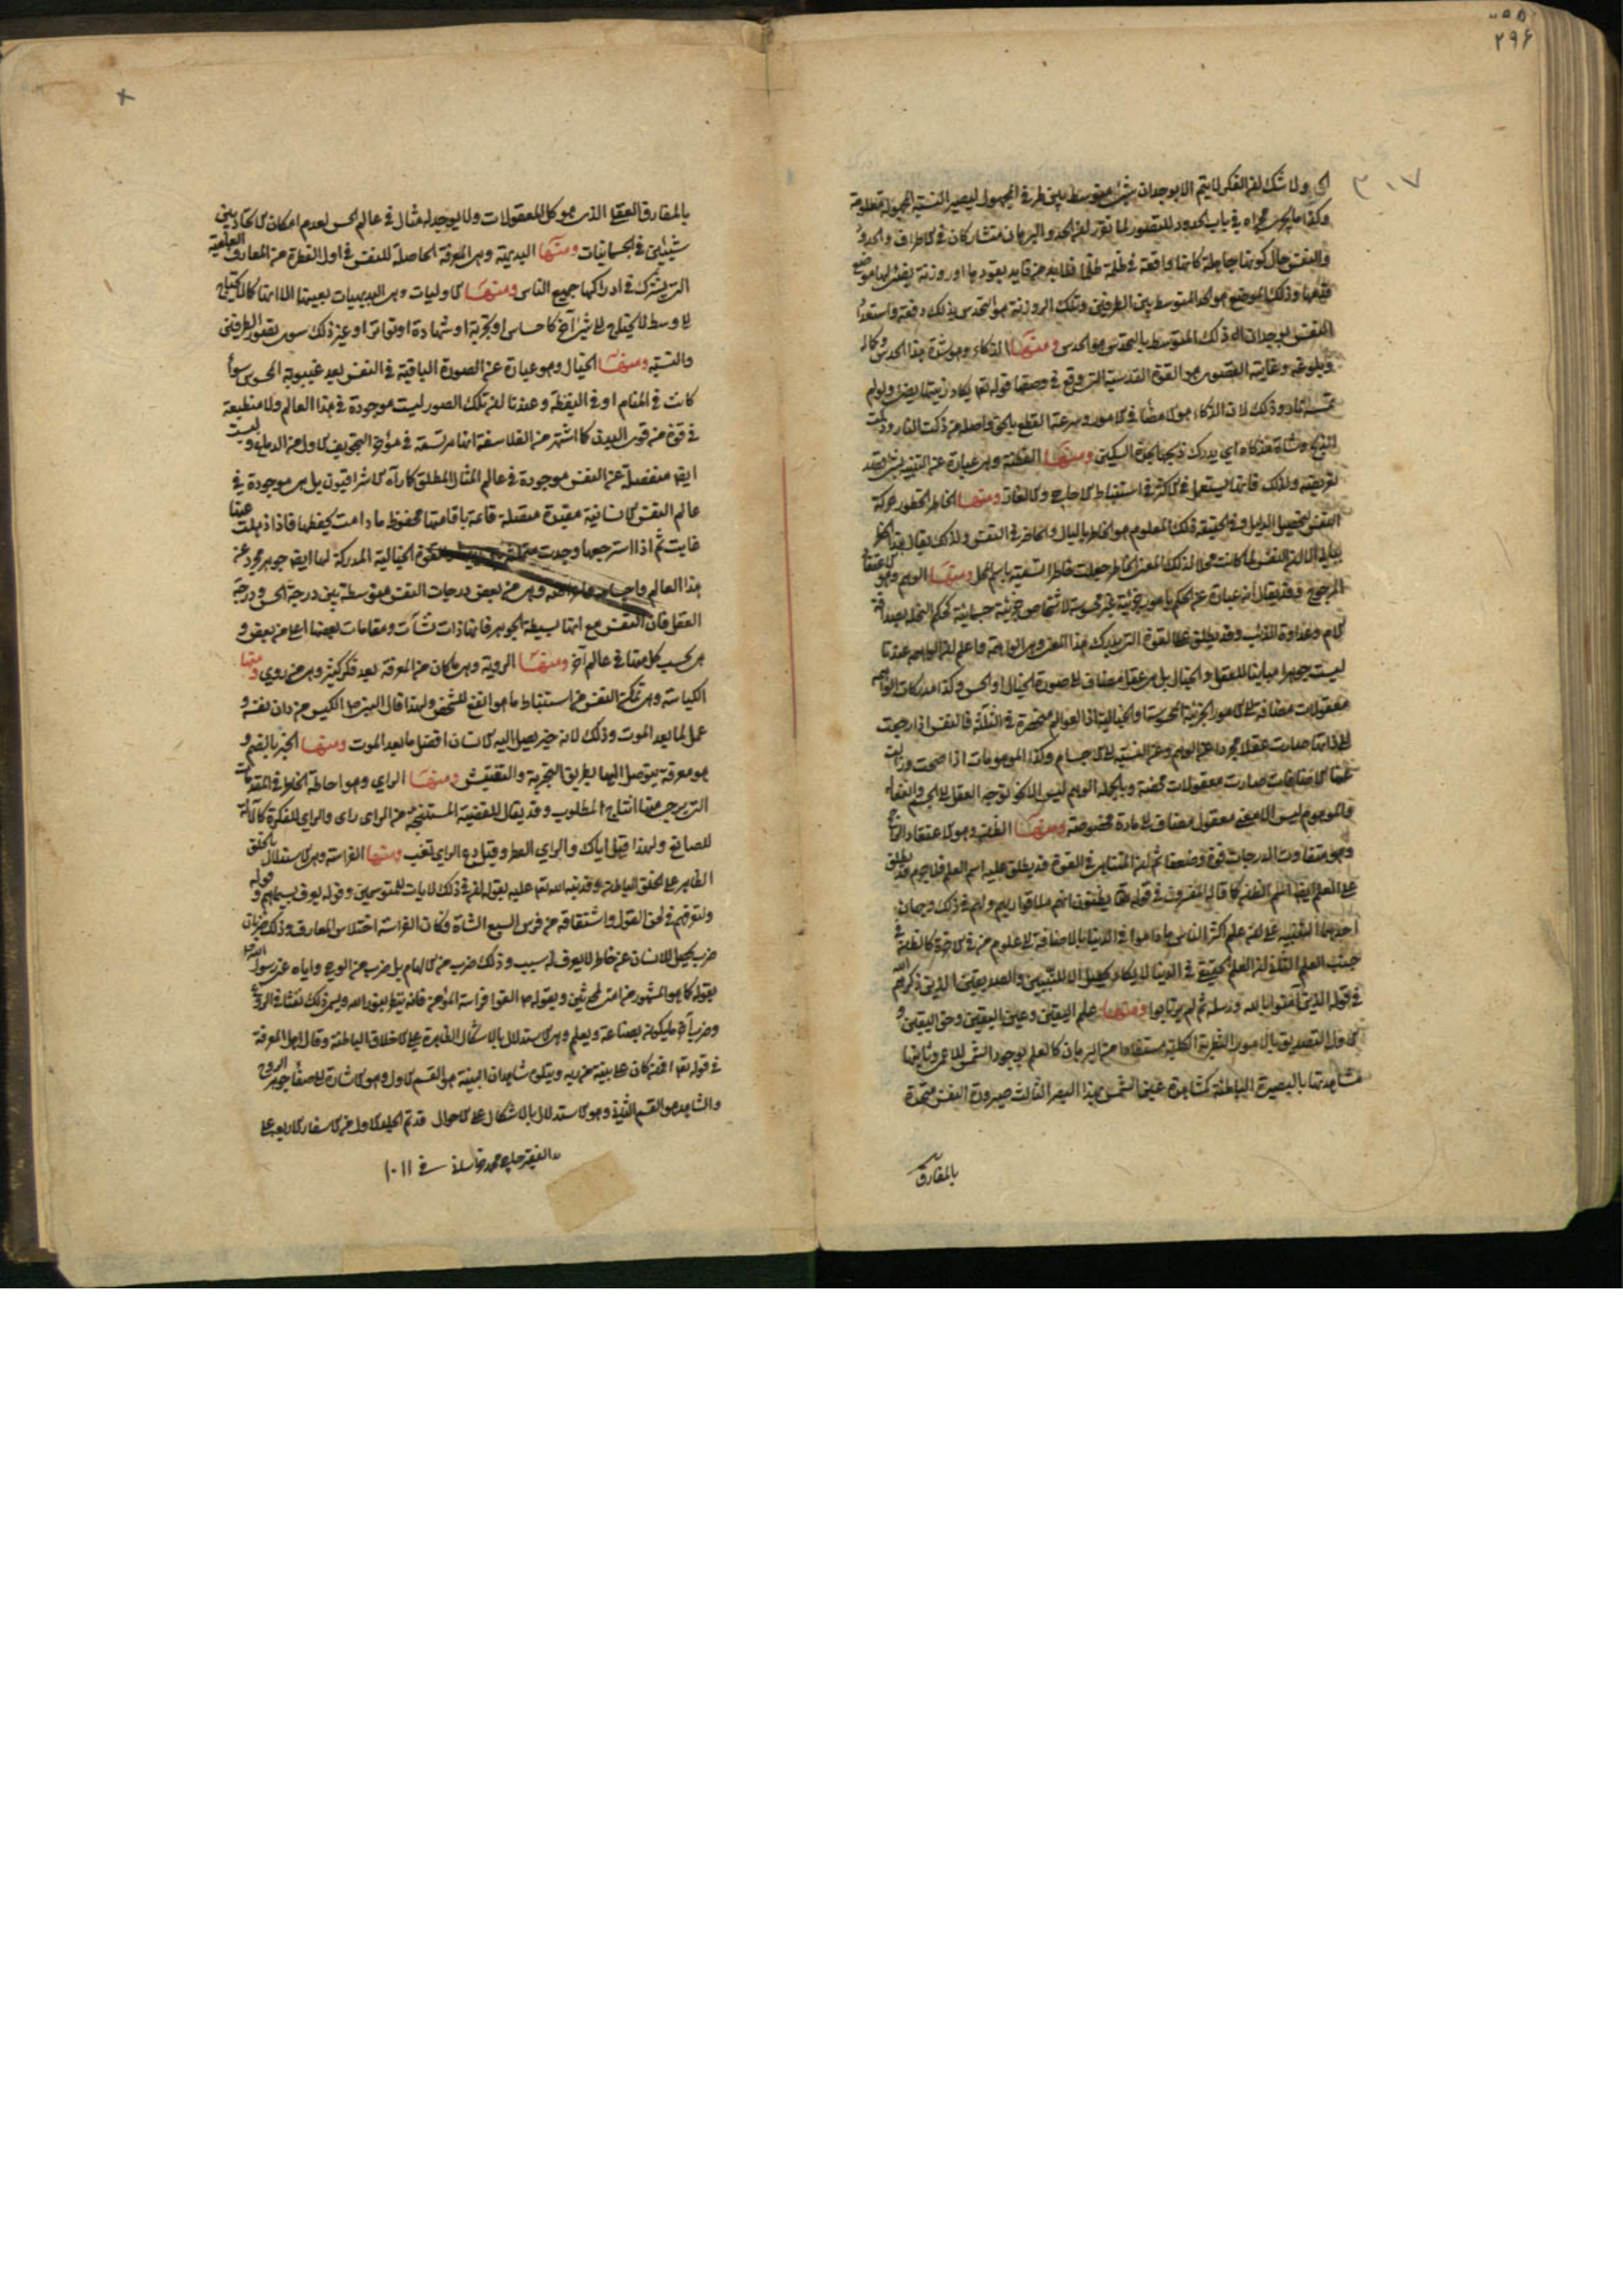 ٢٩٦
٣٠٧
ولا شك ان الفكر لا يتم الا بوجدان شئ متوسط بين طرفي المجهول ليصير النسبة المجهولة معلومة
وكذا ما يجري مجراه في باب الحدود للتصور لما تقرر ان الحد والبرهان متشاركان في الاطراف والحدود
والنفس حال كونها جاهلة كانها واقعة في ظلمة ظلماء فلا بد من قايد يقودها او روزنة يضئ لها موضع
قدمها وذلك الموضع هو الحد المتوسط بين الطرفين وتلك الروزنة هو التحدس بذلك دفعة فاستعداد
النفس لوجدان ذلك المتوسط بالتحدس هو الحدس ومنها الذكاء وهو شدة هذا الحدس وكماله
وبلوغه وغايته القصوى هو القوة القدسية التي وقع في وصفها قوله تعالى يكاد زيتها يضئ ولو لم
تمسسه نار وذلك لان الذكاء هو المضاء في الامور وسرعة القطع بالحق واصله من ذكت النار وذكت
الريح وشاة مذكاة اي يدرك ذبحها بحدة السكين ومنها الفطنة وهي عبارة عن التنبه بشئ قصد
تعريفه ولذلك فانها يستعمل في الاكثر في استنباط الاحاجي والالغاز ومنها الخاطر الخطور حركة
النفس لتحصيل الدليل وفي الحقيقة ذلك المعلوم هو الخاطر بالبال والحاضر في النفس ولذلك يقال هذا خطر
ببالي الا ان النفس لما كانت محلا لذلك المعنى الخاطر جعلت خاطرا تسمية باسم المحل ومنها الوهم وهو الاعتقاد
المرجوح وقد يقال انه عبارة عن الحكم بامور جزئية غير محسوسة لاشخاص جزئية جسمانية كحكم السخلة بصداقة
الام وعداوة الذئب وقد يطلق على القوة التي يدرك هذا المعنى وهي الواهمة واعلم ان الواهمة عندنا
ليست جوهرا مباينا للعقل والخيال بل هي عقل مضاف الى صورة الخيال او الحس وكذا مدركات الواهمة
معقولات مضافة الى الامور الجزئية المحسوسة او الخيالية اذا العوالم منحصرة في الثلاثة فالنفس اذا رجعت
الى ذاتها صارت عقلا مجردا عن الوهم وعن النسبة الى الاجسام وكذا الموهومات اذا صحت وزالت
عنها الاضافات صارت معقولات محضة وبالجملة الوهم ليس الا نحو توجه العقل الى الجسم وانفعاله
والموهوم ليس الا معنى معقول مضاف الى مادة مخصوصة ومنها الظن وهو الاعتقاد الراجح
وهو متفاوت الدرجات قوة وضعفا ثم ان المتناهي في القوة قد يطلق عليه اسم العلم فلا جرم قد يطلق
على العلم ايضا اسم الظن كما قاله المفسرون في قوله تعالى يظنون انهم ملاقوا ربهم ولهم في ذلك وجهان
احدهما التنبيه على ان علم اكثر الناس ما داموا في الدنيا بالاضافة الى علوم من في الآخرة كالظن في
جنب العلم الثاني ان العلم الحقيقي في الدنيا لا يكاد يحصل الا للنبيين والصديقين الذين ذكرهم الله
في قوله الذين آمنوا بالله ورسله ثم لم يرتابوا ومنها علم اليقين وعين اليقين وحق اليقين و
الاول التصديق بالامور النظرية الكلية مستفادا من البرهان كالعلم بوجود الشمس للاعمى وثانيها
مشاهدتها بالبصيرة الباطنة كمشاهدة عين الشمس بهذا البصر الثالث صيرورة النفس متحدة
بالمفارق
بالمفارق العقلي الذي هو كل المعقولات ولا يوجد له مثال في عالم الحس لعدم امكان الاتحاد بين
شيئين في الجسمانيات ومنها البديهة وهي المعرفة الحاصلة للنفس في اول الفطرة من المعارف العامية
التي يشترك في ادراكها جميع الناس ومنها الاوليات وهي البديهيات بعينها الا انها كما لا يحتاج
الى وسط لا يحتاج الى شئ آخر كاحساس او تجربة او شهادة او تواتر او غير ذلك سوى تصور الطرفين
والنسبة ومنها الخيال وهو عبارة عن الصورة الباقية في النفس بعد غيبوبة المحسوس سواء
كانت في المنام او في اليقظة وعندنا ان تلك الصور ليست موجودة في هذا العالم ولا منطبعة
في قوة من قوى البدن كما اشتهر من الفلاسفة انها مرتسمة في مؤخر التجويف الاول من الدماغ وليست
ايضا منفصلة عن النفس موجودة في عالم المثال المطلق كما رآه الاشراقيون بل هي موجودة في
عالم النفس الانسانية مقيدة متصلة قائمة باقامتها محفوظ ما دامت يحفظها فاذا ذهلت عنها
غابت ثم اذا استرجعها وجدت متمثلة القوة الخيالية المدركة لها ايضا جوهر مجرد عن
هذا العالم واجسامه واعراضه وهي من بعض درجات النفس متوسطة بين درجة الحس ودرجة
العقل فان النفس مع انها بسيطة الجوهر فانها ذات نشآت ومقامات بعضها اعلى من بعض و
هي بحسب كل منها في عالم آخر ومنها الروية وهي ما كان من المعرفة بعد فكر كثير وهي من روي ومنها
الكياسة وهي تمكن النفس من استنباط ما هو انفع للشخص ولهذا قال النبي ص الكيس من دان نفسه و
عمل لما بعد الموت وذلك لانه خير يصل اليه الانسان افضل ما بعد الموت ومنها الخبر بالضم و
هو معرفة يتوصل اليها بطريق التجربة والتفتيش ومنها الراي وهو احاطة الخاطر في المقدمات
التي يرجى منها انتاج المطلوب وقد يقال للقضية المستنتجة من الراي راى والراي للفكرة كالآلة
للصانع ولهذا قيل اياك والراي الفطير وقيل دع الراي تغب ومنها الفراسة وهي الاستدلال بالخلق
الظاهر على الخلق الباطن وقد نبه الله تعالى عليه بقوله ان في ذلك لآيات للمتوسمين وقوله يعرف بسيماهم وقوله
ولتعرفنهم في لحن القول واشتقاقه من فرس السبع الشاة فكان الفراسة اختلاس المعارف وذلك ضربان
ضرب يحصل للانسان عن خاطر لا يعرف له سبب وذلك ضرب من الالهام بل ضرب من الوحي واياه عنى رسول الله ص
بقوله كما هو المشهور من امتي لمحدثين وبقوله ص اتقوا فراسة المؤمن فانه ينظر بنور الله ويسمى ذلك نفثا في الروع
وضرب آخر ما يكون بصناعة وبعلم وهي الاستدلال بالاشكال الظاهرة على الاخلاق الباطنة وقال اهل المعرفة
في قوله تعالى افمن كان على بينة من ربه ويتلوه شاهد ان البينة هو القسم الاول وهو الاشارة الى صفاء جوهر الروح
والشاهد هو القسم الثاني وهو الاستدلال بالاشكال على الاحوال قد تم الجلد الاول من الاسفار الاربعة على
يد الفقير حاجي محمد في ١٠١١